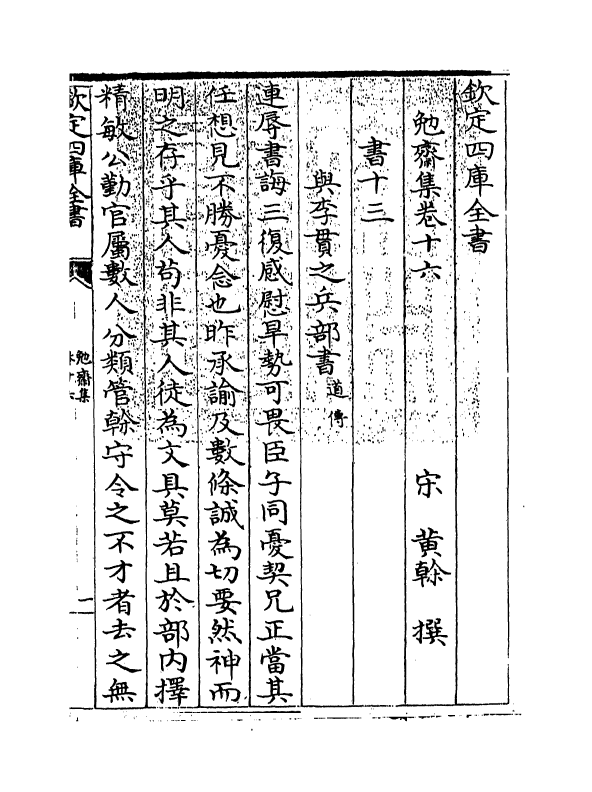 欽定四庫全書
勉齋集卷十六
宋 黃榦 撰
書十三
與李貫之兵部書道傳
連辱書誨三復感慰旱勢可畏臣子同憂契兄正當其
任想見不勝憂念也昨承諭及數條誠為切要然神而
明之存乎其人苟非其人徒為文具莫若且於部內擇
精敏公勤官屬數人分類管榦守令之不才者去之無
欽定四庫全書
勉齋集
卷十六
一